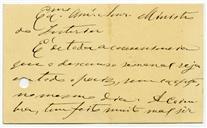 Exmo Amº. Snr. Ministro
do Interior
É de toda a conveniencia
que o descanso semanal seja
em todo o paiz, sem excepção,
no mesmo dia. A
tem sido muito